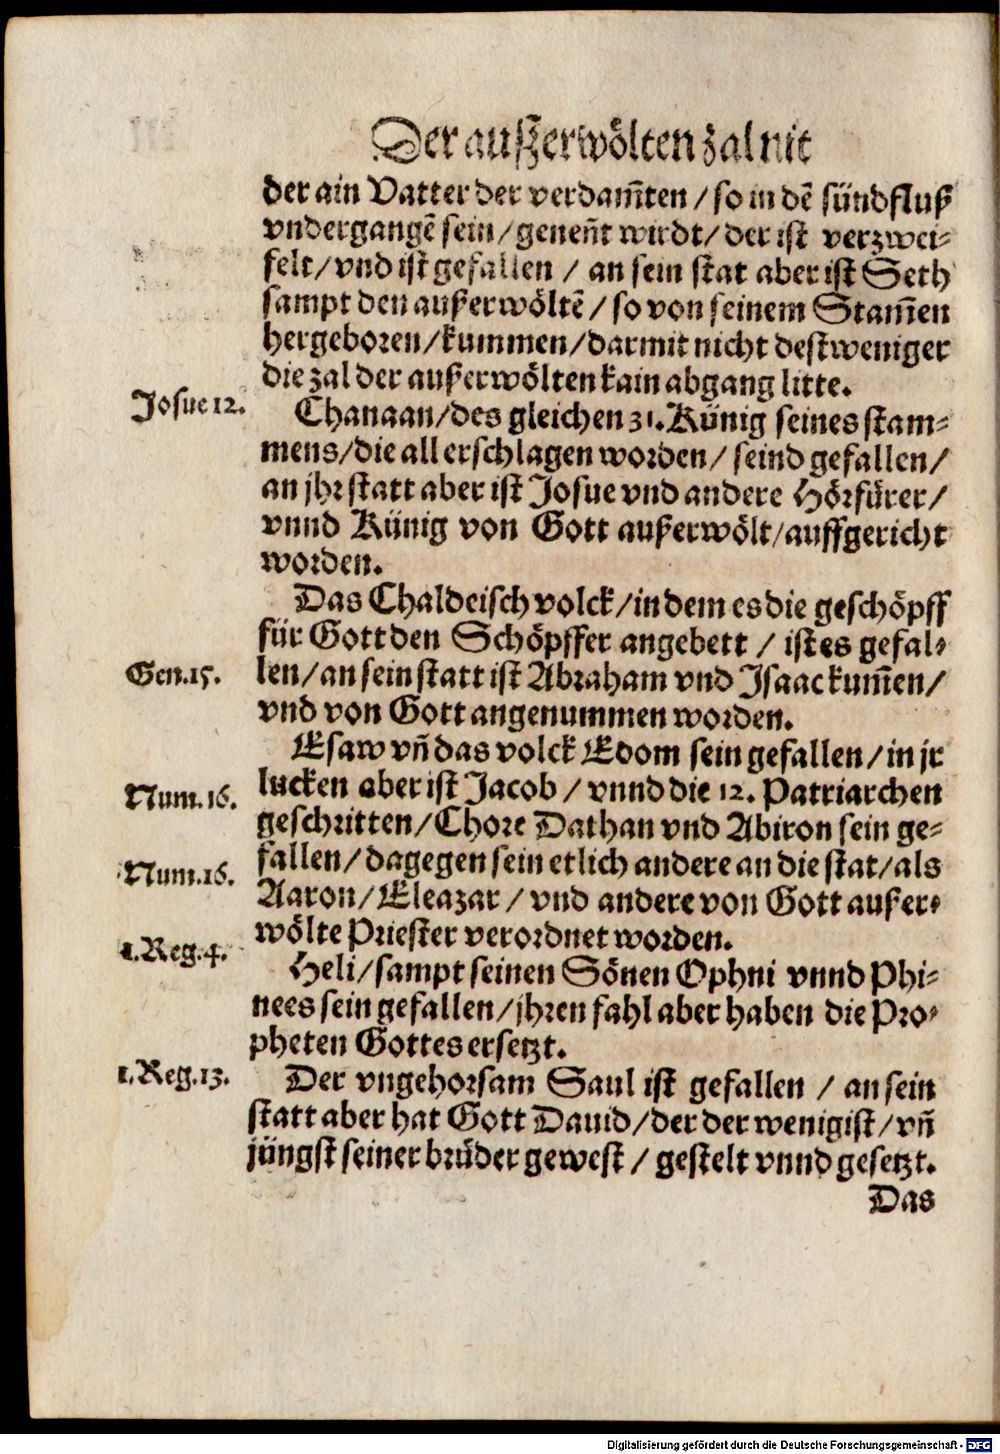 Der außerwölten zal nit
der ain Vatter der verdam̄ten / so in dẽ sündfluß
vndergangẽ sein / genen̄t wirdt / der ist verzwei-
felt / vnd ist gefallen / an sein stat aber ist Seth
sampt den außerwöltẽ / so von seinem Stam̄en
hergeboren / kummen / darmit nicht destweniger
die zal der außerwölten kain abgang litte.
Josue 12.
Chanaan / des gleichen 31. Künig seines stam-
mens / die all erschlagen worden / seind gefallen /
an jhr statt aber ist Josue vnd andere Hörfürer /
vnnd Künig von Gott außerwölt / auffgericht
worden.
Das Chaldeisch volck / in dem es die geschöpff
für Gott den Schöpffer angebett / ist es gefal-
Gen. 15.
len / an sein statt ist Abraham vnd Isaac kum̄en /
vnd von Gott angenummen worden.
Esaw vn̄ das volck Edom sein gefallen / in jr
Num. 16.
lucken aber ist Jacob / vnnd die 12. Patriarchen
geschritten / Chore Dathan vnd Abiron sein ge-
Num. 16.
fallen / dagegen sein etlich andere an die stat / als
Aaron / Eleazar / vnd andere von Gott außer-
wölte Priester verordnet worden.
1. Reg. 4.
Heli / sampt seinen Sönen Ophni vnnd Phi-
nees sein gefallen / jhren fahl aber haben die Pro-
pheten Gottes ersetzt.
1. Reg. 13.
Der vngehorsam Saul ist gefallen / an sein
statt aber hat Gott Dauid / der der wenigist / vn̄
jüngst seiner brüder gewest / gestelt vnnd gesetzt.
Das
Digitalisierung gefördert durch die Deutsche Forschungsgemeinschaft - DFG